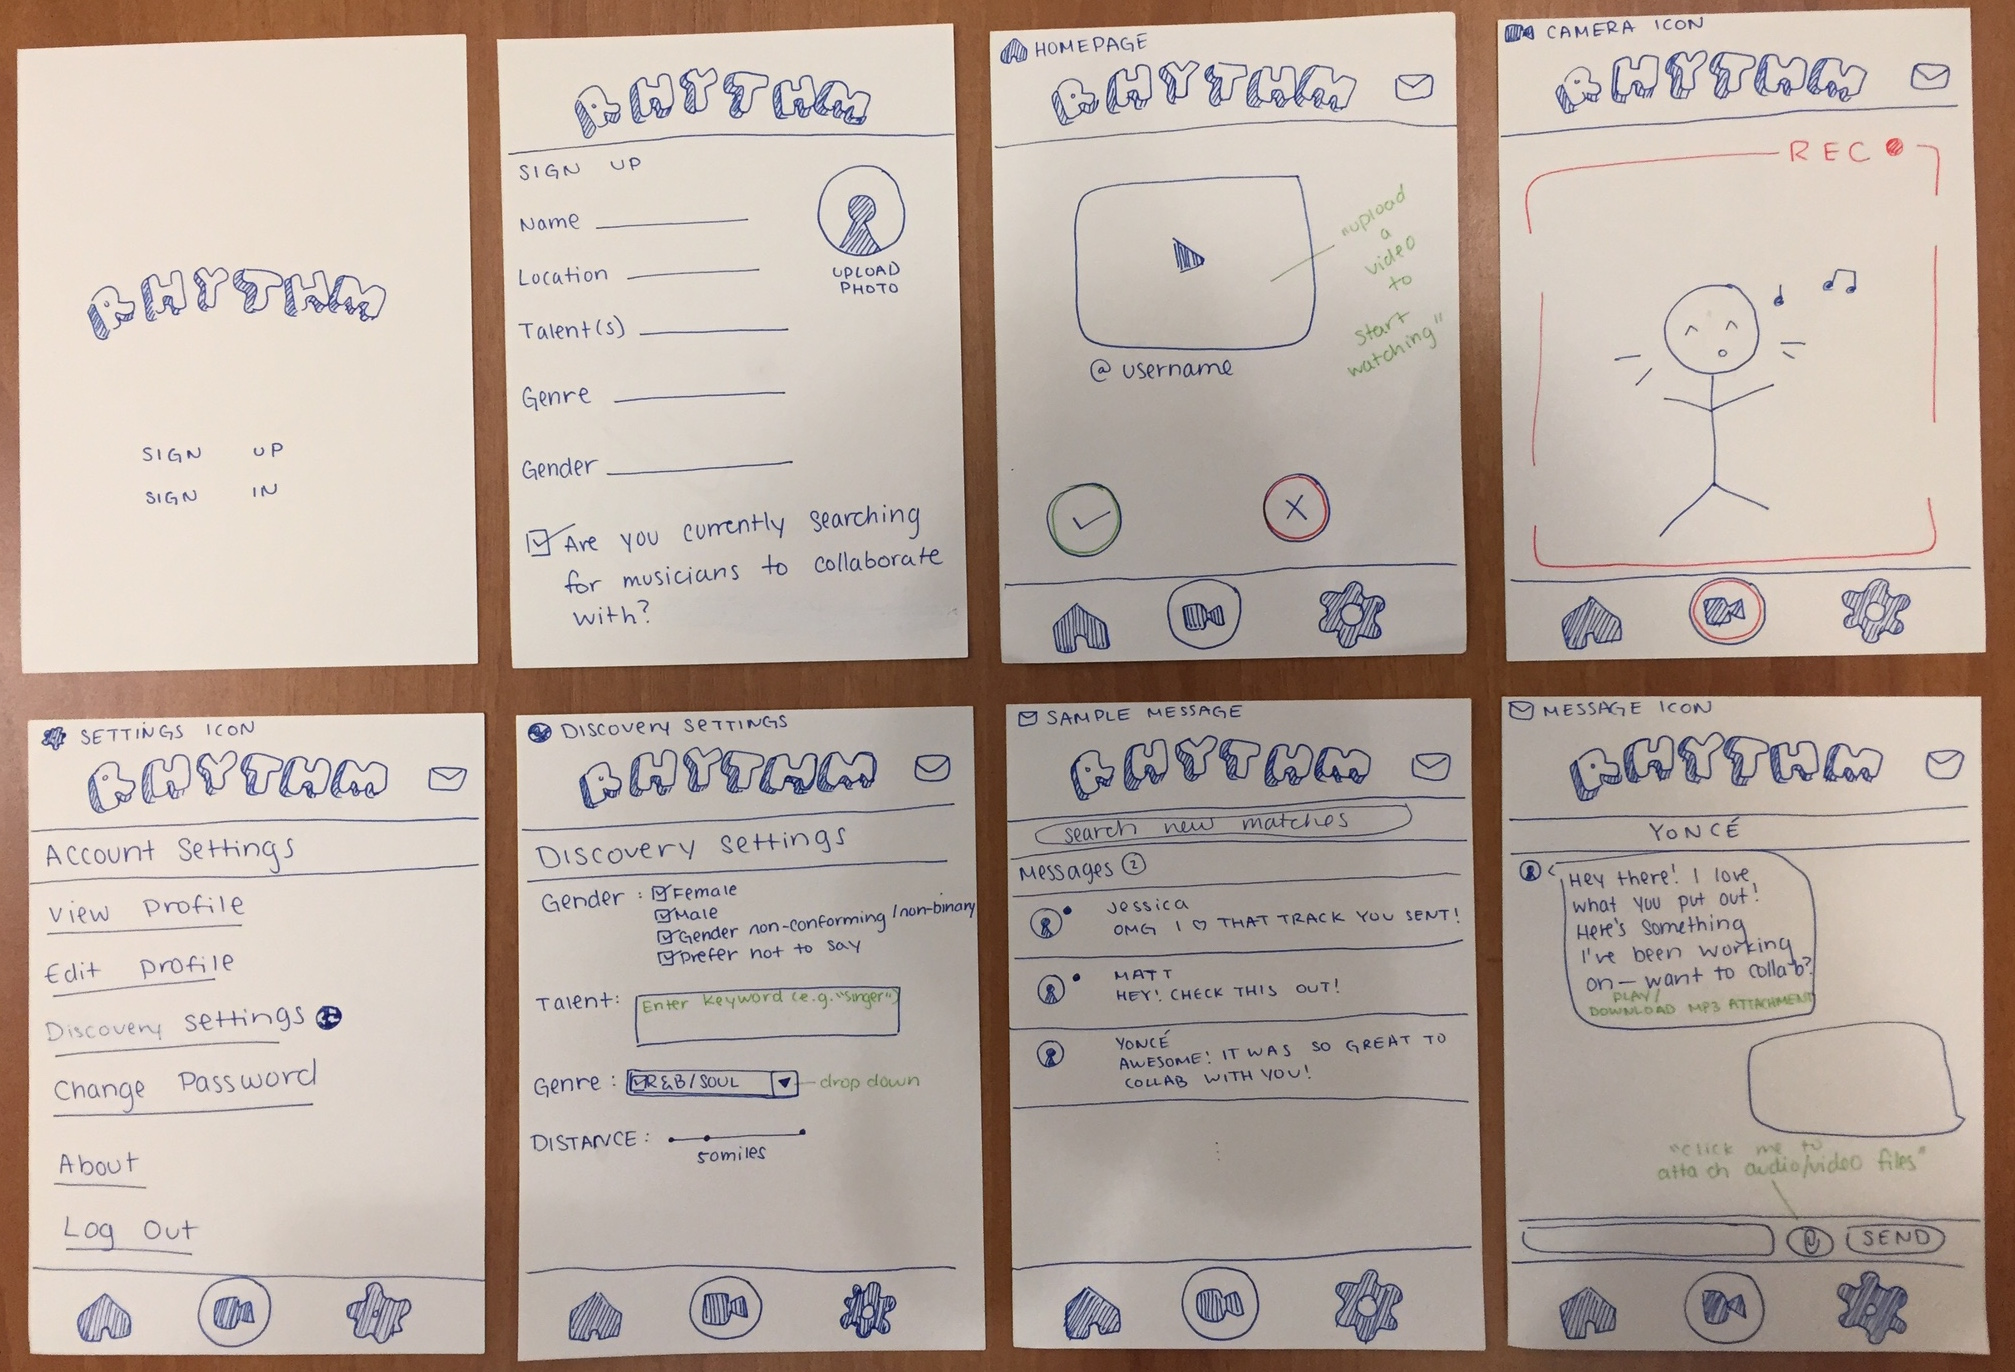 RHYTHM
SIGN UP
SIGN IN
RHYTHM
SIGN UP
Name
Location
Talent(s)
Genre
Gender
UPLOAD
PHOTO
Are you currently searching
for musicians to collaborate
with?
HOMEPAGE
RHYTHM
"upload
a
video
to
start
watching"
@username
CAMERA ICON
RHYTHM
REC
SETTINGS ICON
RHYTHM
Account Settings
View Profile
Edit Profile
Discovery Settings
Change Password
About
Log Out
DISCOVERY SETTINGS
RHYTHM
Discovery Settings
Gender: Female
Male
Gender non-conforming/non-binary
Prefer not to say
Talent: Enter keyword (e.g. "Singer")
Genre: R&B/SOUL drop down
DISTANCE:
50miles
SAMPLE MESSAGE
RHYTHM
search new matches
Messages 2
Jessica
OMG I ♡ THAT TRACK YOU SENT!
MATT
HEY! CHECK THIS OUT!
YONCÉ
AWESOME! IT WAS SO GREAT TO
COLLAB WITH YOU!
MESSAGE ICON
RHYTHM
YONCÉ
Hey there! I love
what you put out!
Here's something
I've been working
on — want to collab?
PLAY/
DOWNLOAD MP3 ATTACHMENT
"click me to
attach audio/video files"
SEND